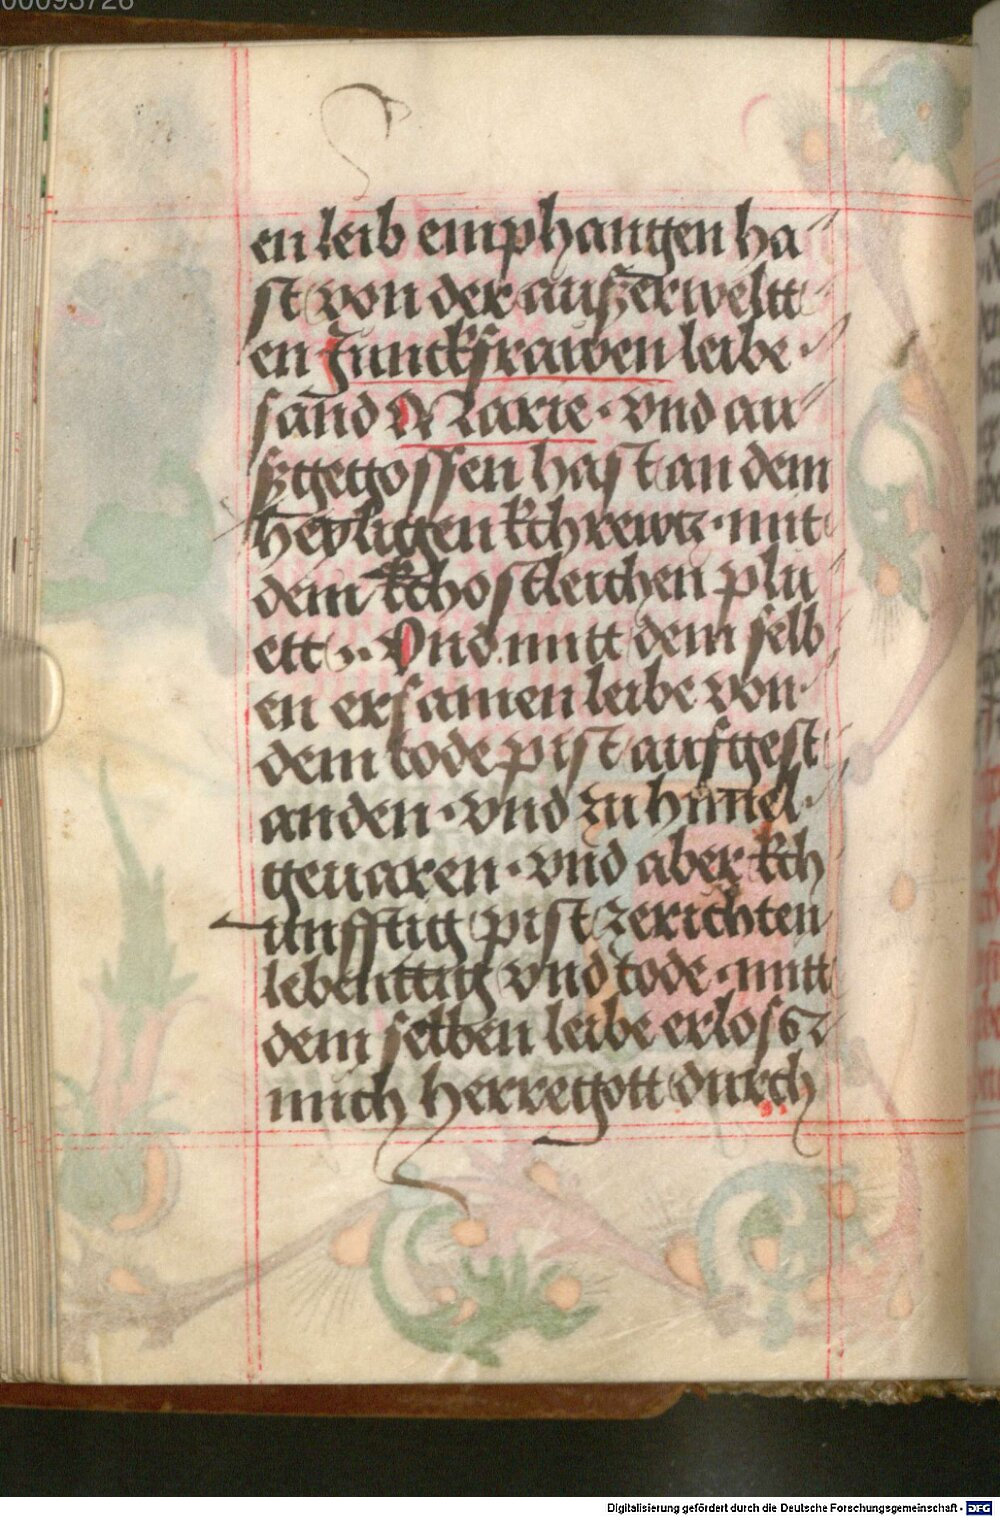 00093726
en leib emphangen ha
st von der außerweltt
en Junckfrawen leibe ·
sand Marie · vnd au
sztgegossen hast an dem
heyligen kchrewtz · mit
dem kchostleichen plu
ett · Vnd mitt dem selb
en ersamen leibe von
dem tode pist aufgest
anden · vnd zu himel
geuaren · vnd aber kch
unfftig pist zerichten
lebenttig vnd tode · mitt
dem selben leibe erlos
mich herregott durch
Digitalisierung gefördert durch die Deutsche Forschungsgemeinschaft - DFG